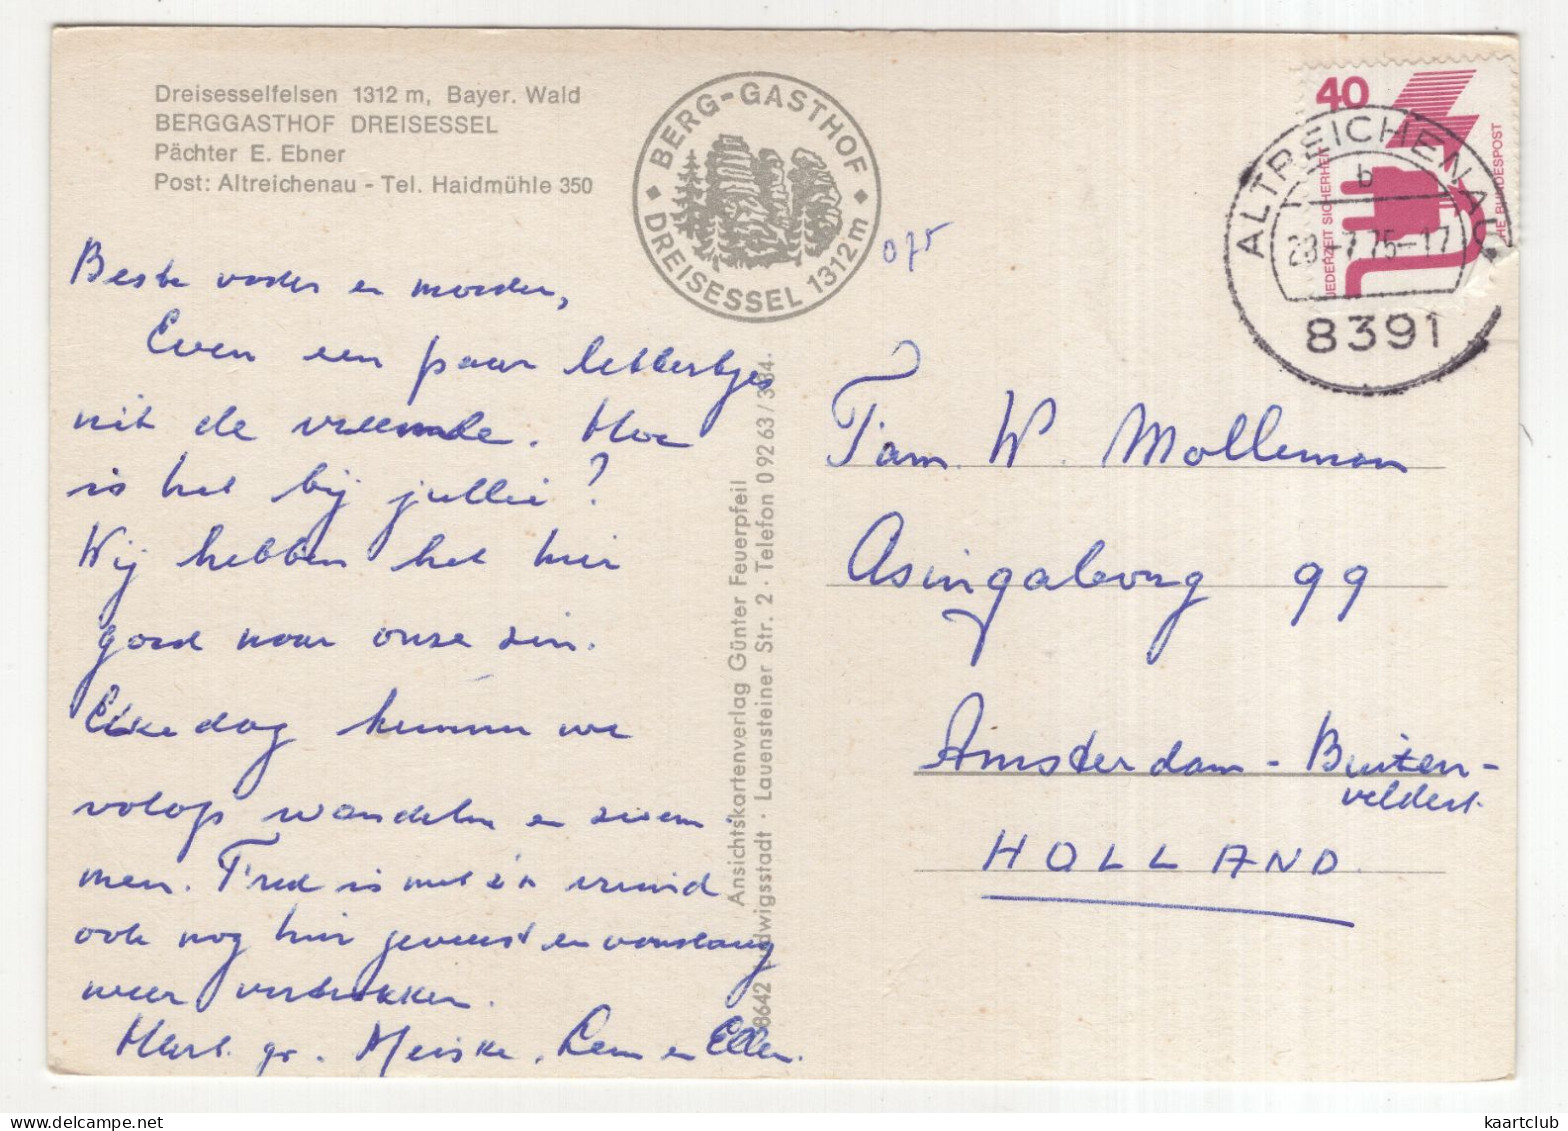 Dreisesselfelsen 1312 m, Bayer. Wald
BERGGASTHOF DREISESSEL
Pächter E. Ebner
Post: Altreichenau - Tel. Haidmühle 350
BERG-GASTHOF
DREISESSEL 1312 m
075
40
JEDERZEIT SICHERHEIT
HE BUNDESPOST
ALTREICHENAU
b
28.-7.75-17
8391
Beste vader en moeder,
Even een paar lettertjes
uit de vreemde. Hoe
is het bij jullie?
Wij hebben het hier
goed naar onze zin.
Elke dag kunnen we
volop wandelen en zwem-
men. Fred is met z'n vriend
ook nog hier geweest en vandaag
weer vertrokken.
Hart. gr. Meiske, Lem en Ellen.
Ansichtskartenverlag Günter Feuerpfeil
8642 Ludwigsstadt · Lauensteiner Str. 2 · Telefon 09263/384.
Fam. W. Molleman
Asingaborg 99
Amsterdam - Buiten-
veldert
HOLLAND
kaartclub